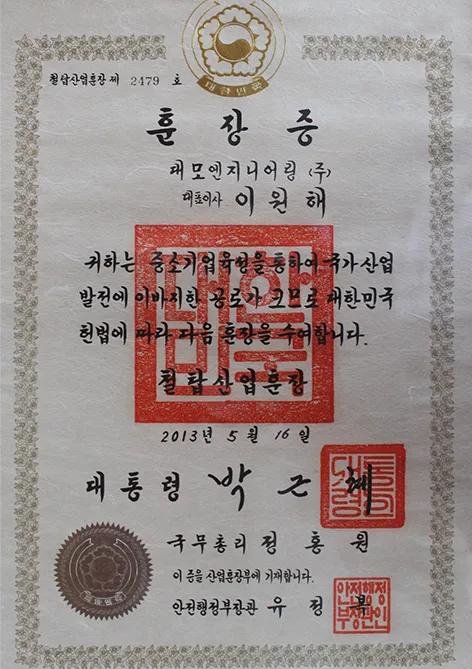 대한민국
철탑산업훈장 제 2479 호
훈장증
대모엔지니어링 (주)
대표이사 이원해
귀하는 중소기업육성을 통하여 국가산업
발전에 이바지한 공로가 크므로 대한민국
헌법에 따라 다음 훈장을 수여합니다.
철탑산업훈장
2013년 5월 16일
대통령 박근혜
국무총리 정홍원
이 증을 산업훈장부에 기재합니다.
안전행정부장관 유정복
안전행정
부장관인